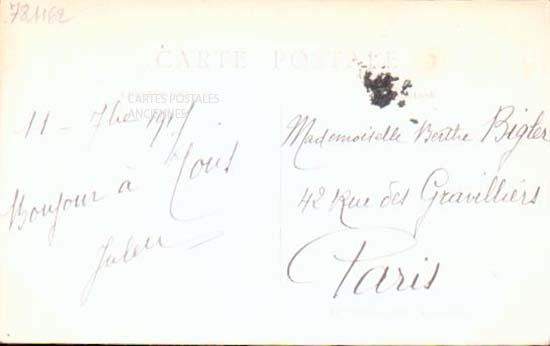 781162
CARTE POSTALE
CARTES POSTALES
ANCIENNES
11 - 7bre
Bonjour à Tous
Mademoiselle Berthe Bigler
42 Rue des Gravilliérs
Paris